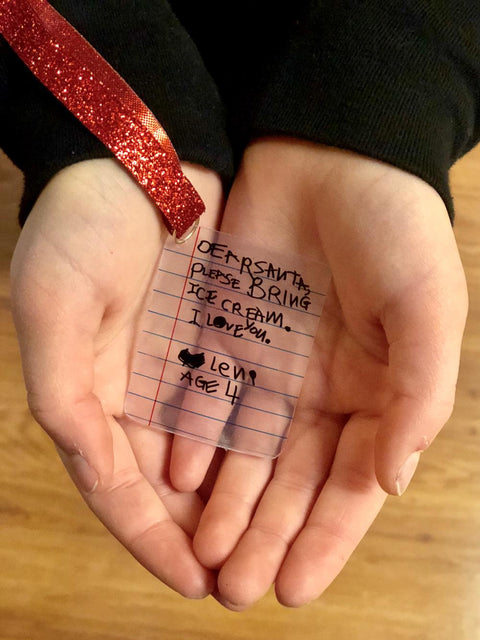 DEAR SANTA,
PLEASE BRING
ICE CREAM.
I LOVE YOU.
Levi
AGE 4